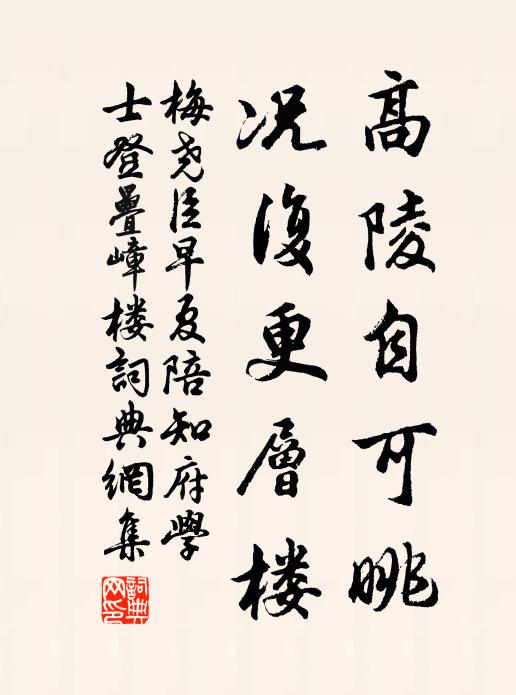 高陵自可眺
况復更層楼
梅尧臣早夏陪知府學
士登疊嶂楼詞典網集
詞典網印